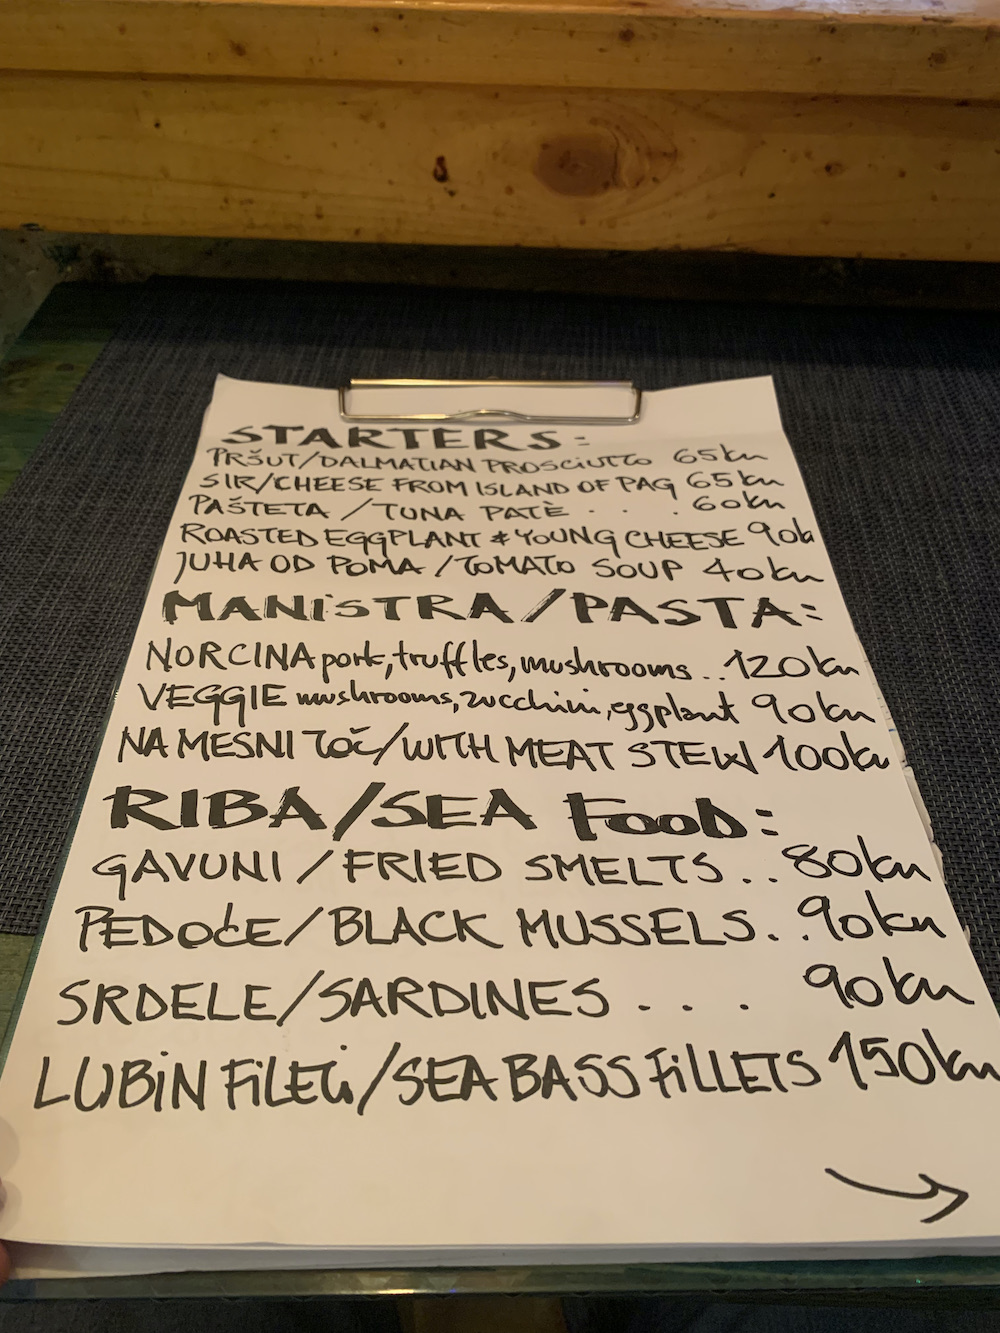 STARTERS:
PRŠUT/DALMATIAN PROSCIUTTO 65kn
SIR/CHEESE FROM ISLAND OF PAG 65kn
PAŠTETA / TUNA PATÈ . . . 60kn
ROASTED EGGPLANT & YOUNG CHEESE 90k
JUHA OD POMA / TOMATO SOUP 40kn
MANiSTRA/PASTA:
NORCINA pork, truffles, mushrooms .. 120kn
VEGGIE mushrooms, zucchini, eggplant 90kn
NA MESNI TOČ/WITH MEAT STEW 100kn
RIBA/SEA FooD:
GAVUNI / FRIED SMELTS .. 80kn
PEDOĆE/BLACK MUSSELS. . 90kn
SRDELE/SARDINES . . . 90kn
LUBiN FiLETi/SEA BASS FiLLETS 150kn